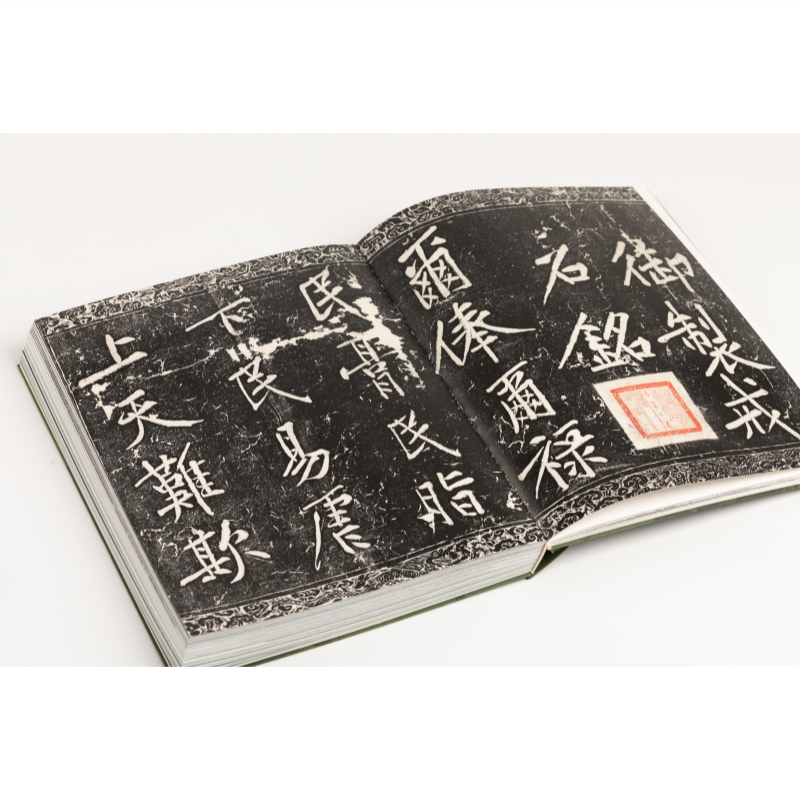 御製戒
石銘
爾俸爾祿
民膏民脂
下民易虐
上天難欺